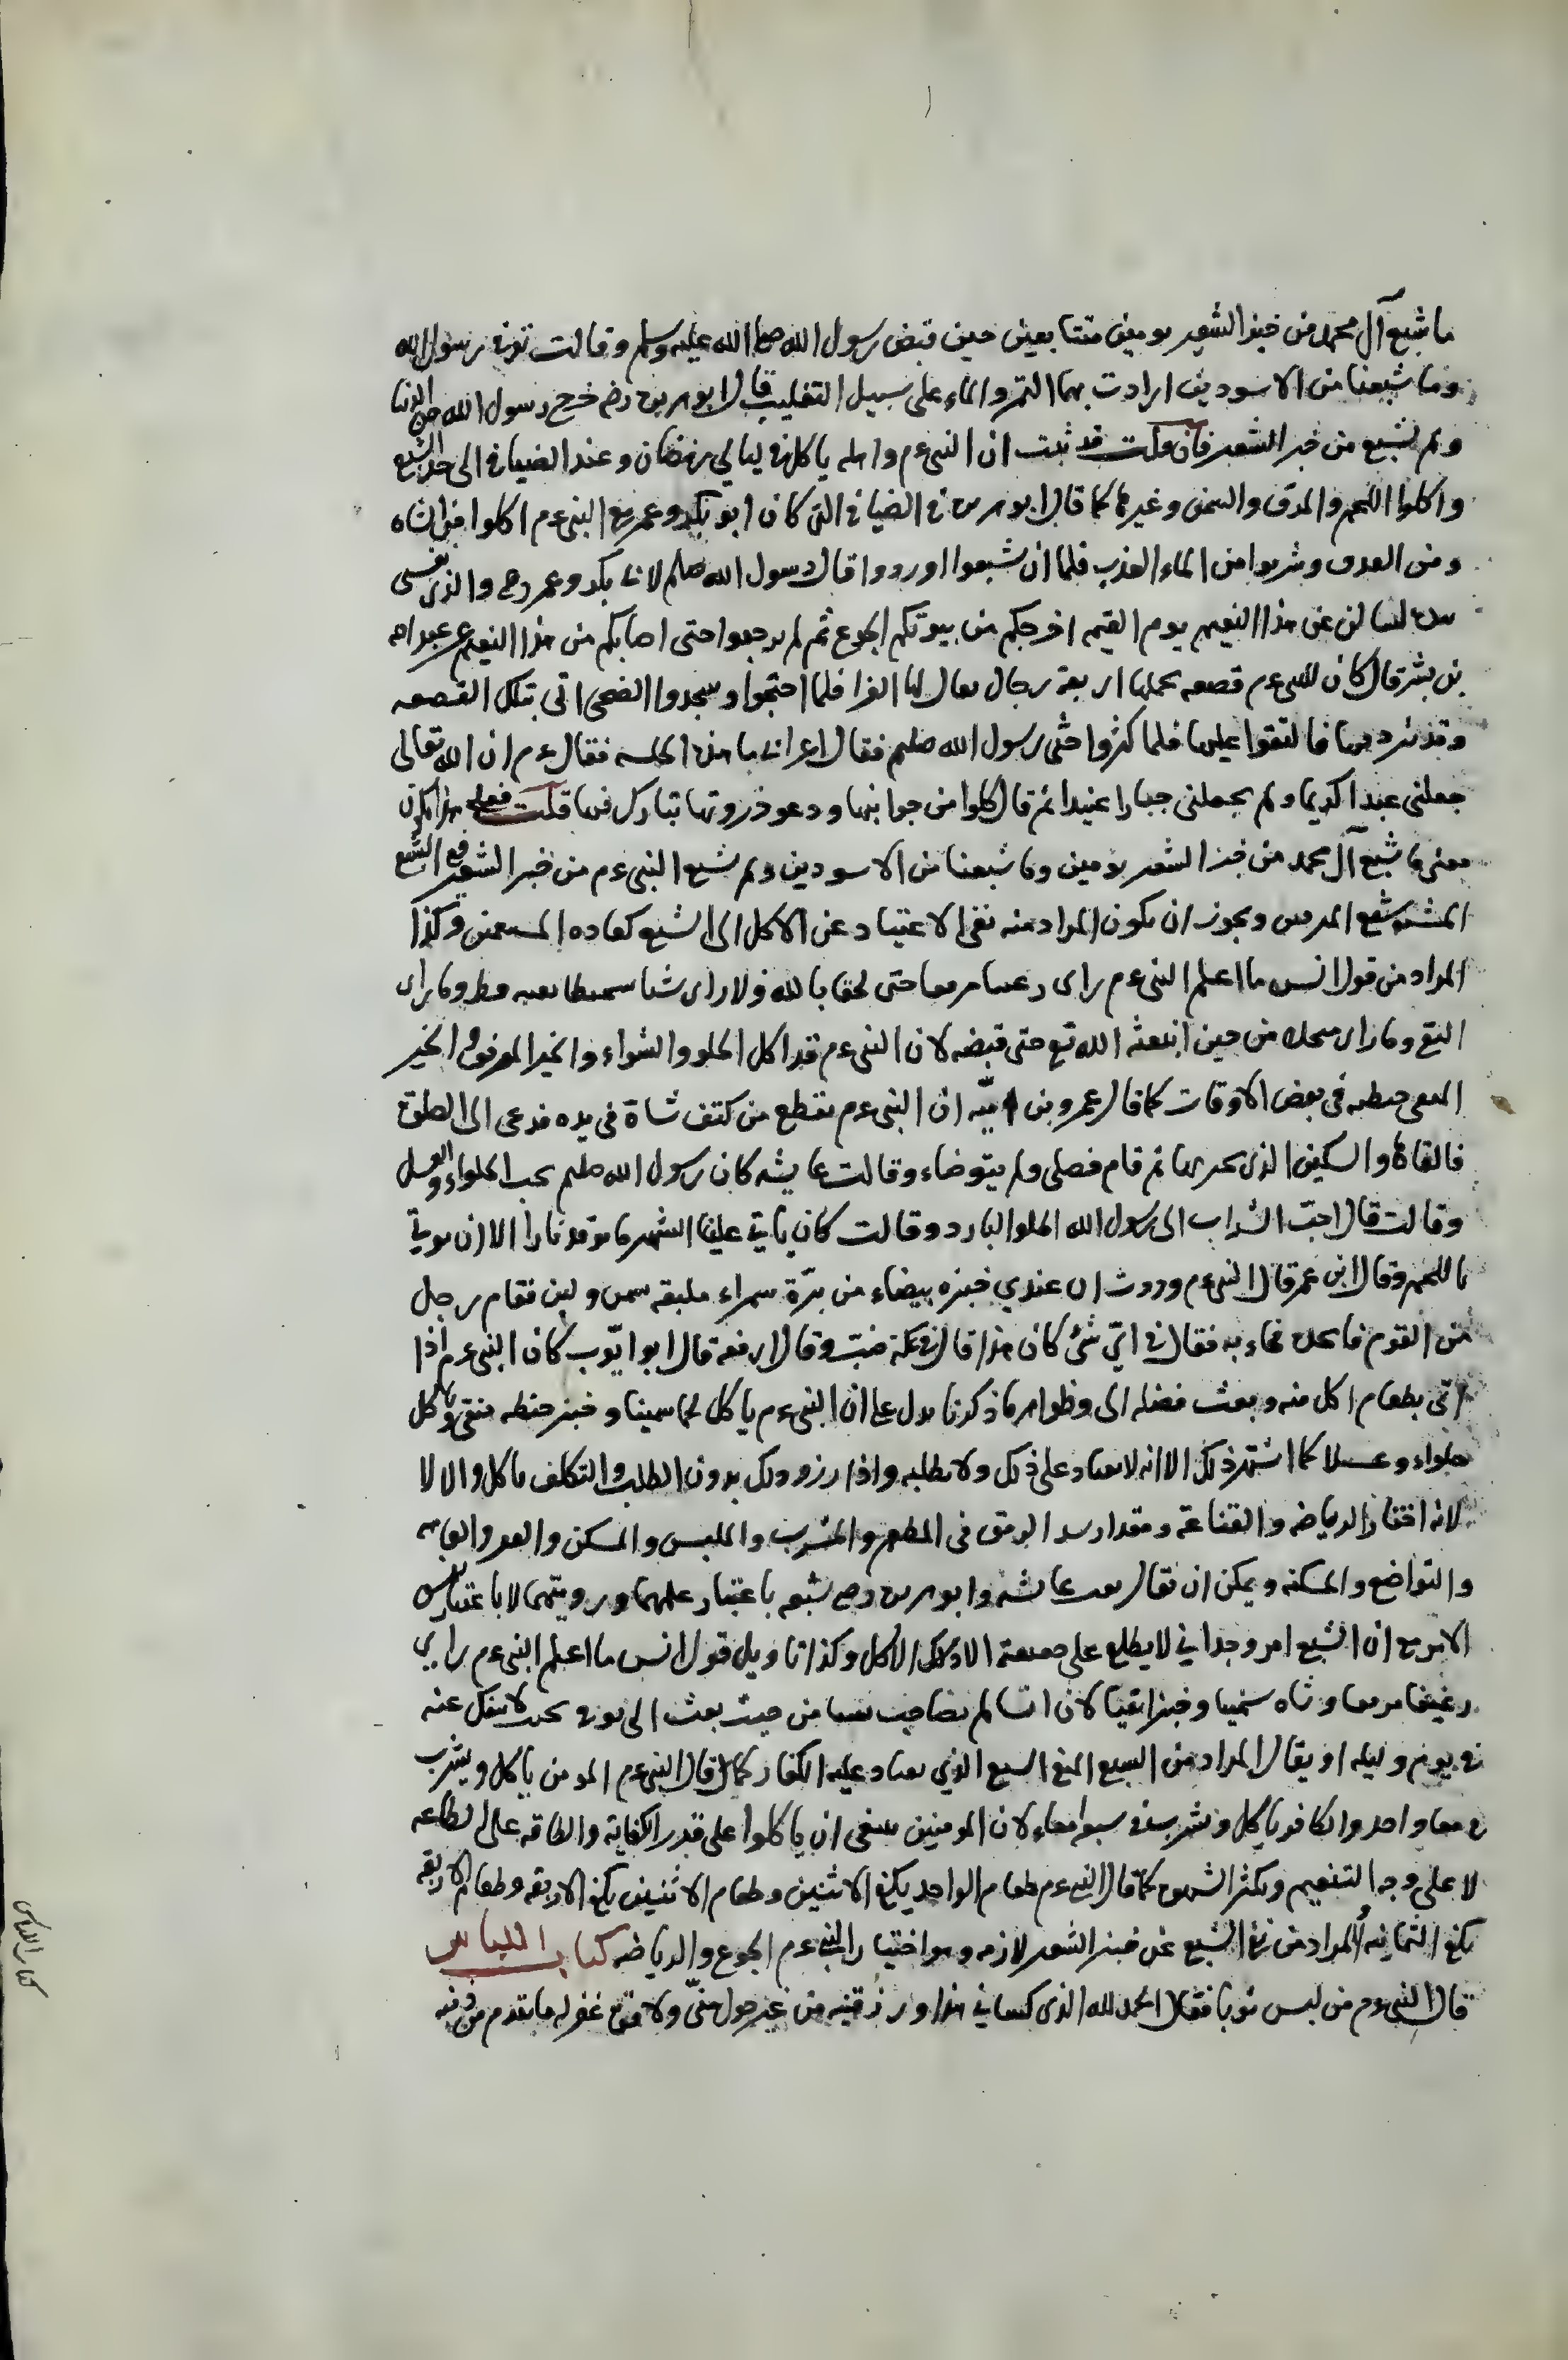 ما شبع آل محمد من خبز الشعير يومين متتابعين حين قبض رسول الله صلى الله عليه وسلم وقالت توفي رسول الله
وما شبعنا من الاسودين ارادت بهما التمر والماء على سبيل التغليب قال ابو هريرة رضه خرج رسول الله من الدنيا
ولم يشبع من خبز الشعير فان قلت قد ثبت ان النبي ءم واهله ياكل في ليالي رمضان وعند الضيافة الى حد الشبع
واكلوا اللحم والمرق والسمن وغيرها كما قال ابو هريرة في الضيافة التي كان ابو بكر وعمر مع النبي ءم اكلوا من الشاة
ومن العذق وشربوا من الماء العذب فلما ان شبعوا ورووا قال رسول الله صلعم لابي بكر وعمر رضي والذي نفسي
بيده لتسالن عن هذا النعيم يوم القيمة اخرجكم من بيوتكم الجوع ثم لم ترجعوا حتى اصابكم من هذا النعيم عن عبد الله
بن بشر قال كان للنبي ءم قصعه يحملها اربعة رجال يقال لها الغرا فلما اضحوا وسجدوا الضحى اتي بتلك القصعه
وقد ثرد بها فالتقوا عليها فلما كثروا جثى رسول الله صلعم فقال اعرابي ما هذه الجلسه فقال ءم ان الله تعالى
جعلني عبدا كريما ولم يجعلني جبارا عنيدا ثم قال كلوا من جوانبها ودعو ذروتها تبارك فيها قلت فعلى هذا يكون
معنى ما شبع آل محمد من خبز الشعير يومين وما شبعنا من الاسودين ولم يشبع النبي ءم من خبز الشعير رفع الشبع
المشبع ويجوز ان يكون المراد منه نفى الاعتياد عن الاكل الى الشبع كعاده المتنعمين وكذا
المراد من قول انس ما اعلم النبي ءم راى رغيفا مرققا حتى لحق بالله ولا راى شاة سميطا بعينه قط وما راى
النقي وما راى منخلا من حين ابتعثه الله تع حتى قبضه لان النبي ءم قد اكل الحلو والشواء والخبز المرقوق الخبز
النقي حنطه في بعض الاوقات كما قال عمرو بن اميّه ان النبي ءم يقطع من كتف شاة في يده فدعى الى الصلوة
فالقاها والسكين الذي يحتز بها ثم قام فصلى ولم يتوضاء وقالت عايشه كان رسول الله صلعم يحب الحلواء والعسل
وقالت قال احبّ الشراب الى رسول الله الحلو البارد وقالت كان ياتي علينا الشهر ما نوقد نارا الا ان نوتي
باللحم وقال ابن عمر قال النبي ءم وددت ان عندي خبزه بيضاء من برّة سمراء ملبقه بسمن ولبن فقام رجل
من القوم فاتخذه فجاء به فقال في ايّ شئ كان هذا قال في عكة ضبّ وقال ابو ايّوب كان النبي ءم اذا
اتى بطعام اكل منه وبعث فضله الى وظواهر ما ذكرنا يدل على ان النبي ءم ياكل لحما سمينا وخبز حنطه منقى وياكل
حلواء وعسلا كما اشتهر ذلك الا انه لا يعتاد على ذلك ولا يطلبه واذا رزق ذلك بدون الطلب والتكلف ياكل والا لا
لانه اختار الرياضه والقناعة ومقدار سد الرمق في المطعم والمشرب والملبس والمسكن والفقر والفاقه
والتواضع والمسكنه ويمكن ان يقال نفت عايشه وابو هريرة رضي شبعه باعتبار علمهما ورويتهما لا باعتبار نفس
الامر مع ان الشبع امر وجداني لا يطلع على حقيقته الا ذلك الاكل وكذا تاويل قول انس ما اعلم النبي ءم راي
رغيفا مرققا وشاه سميطا وخبزا نقيا لان انسا لم يصاحب من حيث بعث الى موته بحيث لا ينفك عنه
في يوم وليله او يقال المراد من الشبع المنفي الشبع الذي يعتاد عليه الكفار كما قال النبي ءم المومن ياكل ويشرب
في معا واحد والكافر ياكل ويشرب في سبع امعاء لان المومنين ينبغي ان ياكلوا على قدر الكفاية والطاقه على الطاعه
لا على وجه التنعيم وتكثر الشهوة كما قال النبي ءم طعام الواحد يكفي الاثنين وطعام الاثنين يكفي الاربعه وطعام الاربعه
يكفي الثمانيه او المراد من نفي الشبع عن خبز الشعير لازمه وهو اختيار النبي ءم الجوع والرياضه كتاب اللباس
قال النبي ءم من لبس ثوبا فقال الحمد لله الذي كساني هذا ورزقنيه من غير حول منّي ولا قوة غفر له ما تقدم من ذنبه
كتاب اللباس